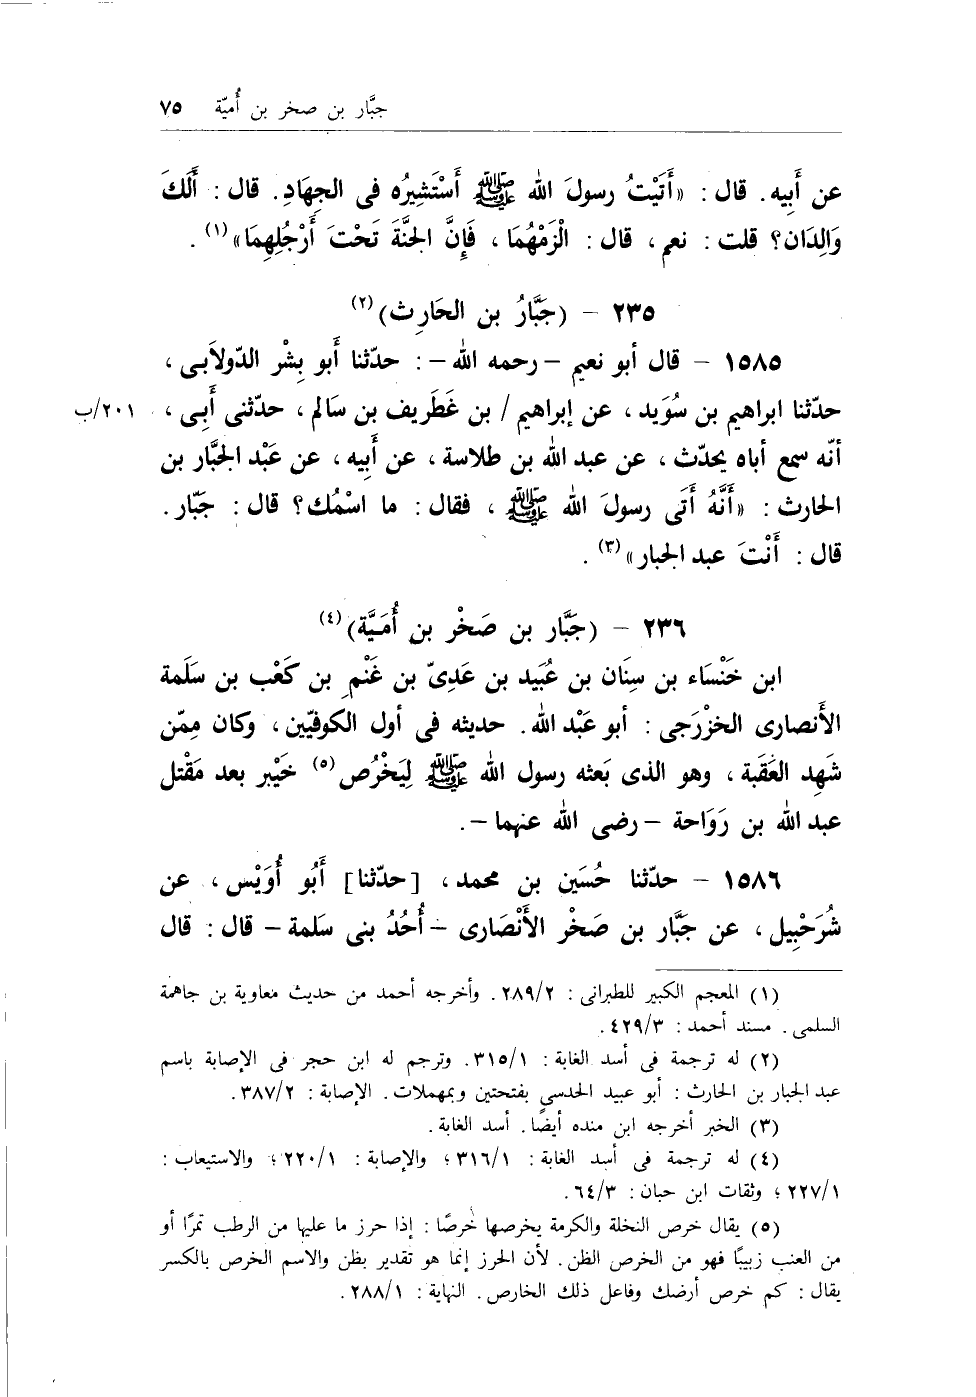 جبَّار بن صخر بن أُميّة ٧٥
عن أَبِيه. قال : «أَتَيْتُ رسولَ الله ﷺ أَسْتَشِيرُه فى الجِهَادِ. قال : أَلَكَ
وَالِدَان؟ قلت : نعم ، قال : الْزَمْهُمَا ، فَإِنَّ الجنَّةَ تَحْتَ أَرْجُلِهِمَا» (١) .
٢٣٥ – (جَبَّارُ بن الحَارِث) (٢)
١٥٨٥ – قال أبو نعيم – رحمه الله – : حدّثنا أَبو بِشْر الدّولاَبى ،
حدّثنا ابراهيم بن سُوَيد ، عن إبراهيم / بن غَطَريف بن سَالم ، حدّثنى أَبِى ، ٢٠١/ب
أنّه سمع أباه يحدّث ، عن عبد الله بن طلاسة ، عن أَبِيه ، عن عَبْد الجبَّار بن
الحارث : «أَنَّهُ أَتَى رسولَ الله ﷺ ، فقال : ما اسْمُك؟ قال : جَبّار .
قال : أَنْتَ عبد الجبار» (٣) .
٢٣٦ – (جَبَّار بن صَخْر بن أُمَيَّة) (٤)
ابن خَنْسَاء بن سِنَان بن عُبَيد بن عَدِىّ بن غَنْمِ بن كَعْب بن سَلَمة
الأَنصارى الخزْرَجى : أبو عَبْد الله. حديثه فى أول الكوفيّين ، وكان مِمّن
شَهِد العَقَبة ، وهو الذى بَعثه رسول الله ﷺ لِيَخْرُص (٥) خَيْبر بعد مَقْتل
عبد الله بن رَوَاحة – رضى الله عنهما – .
١٥٨٦ – حدّثنا حُسَين بن محمد ، [حدّثنا] أَبُو أُوَيْس ، عن
شُرَحْبِيل ، عن جَبَّار بن صَخْر الأَنْصَارى – أَحُدُ بنى سَلمة – قال : قال
(١) المعجم الكبير للطبرانى : ٢٨٩/٢. وأخرجه أحمد من حديث معاوية بن جاهمة
السلمى. مسند أحمد : ٤٢٩/٣.
(٢) له ترجمة فى أسد الغابة : ٣١٥/١. وترجم له ابن حجر فى الإصابة باسم
عبد الجبار بن الحارث : أبو عبيد الحدسى بفتحتين وبمهملات. الإصابة : ٣٨٧/٢.
(٣) الخبر أخرجه ابن منده أيضًا. أسد الغابة.
(٤) له ترجمة فى أسد الغابة : ٣١٦/١ ؛ والإصابة : ٢٢٠/١ ؛ والاستيعاب :
٢٢٧/١ ؛ وثقات ابن حبان : ٦٤/٣.
(٥) يقال خرص النخلة والكرمة يخرصها خرصًا : إذا حرز ما عليها من الرطب تمرًا أو
من العنب زبيبًا فهو من الخرص الظن. لأن الحرز إنما هو تقدير بظن والاسم الخرص بالكسر
يقال : كم خرص أرضك وفاعل ذلك الخارص. النهاية : ٢٨٨/١.